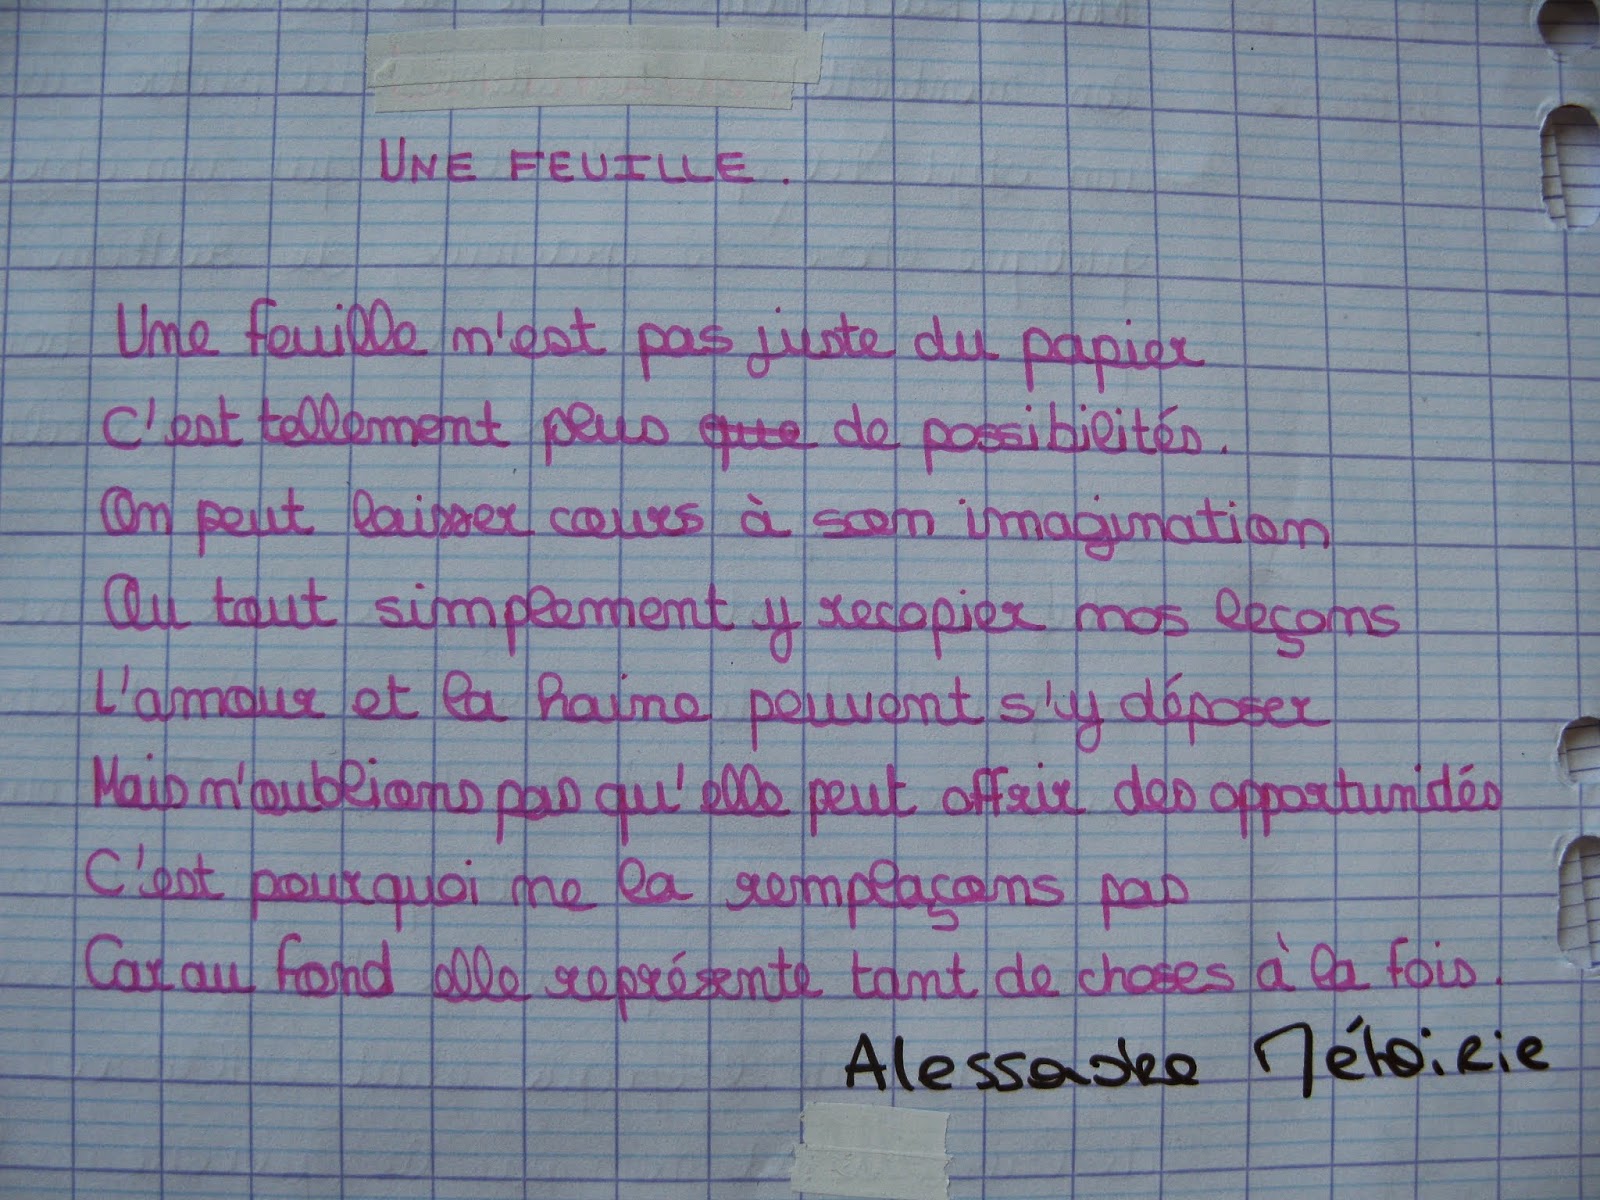 UNE FEUILLE.
Une feuille n'est pas juste du papier
C'est tellement plus que de possibilités.
On peut laisser cours à son imagination
Ou tout simplement y recopier nos leçons
L'amour et la haine peuvent s'y déposer
Mais n'oublions pas qu'elle peut offrir des opportunidés
C'est pourquoi ne la remplaçons pas
Car au fond elle représente tant de choses à la fois.